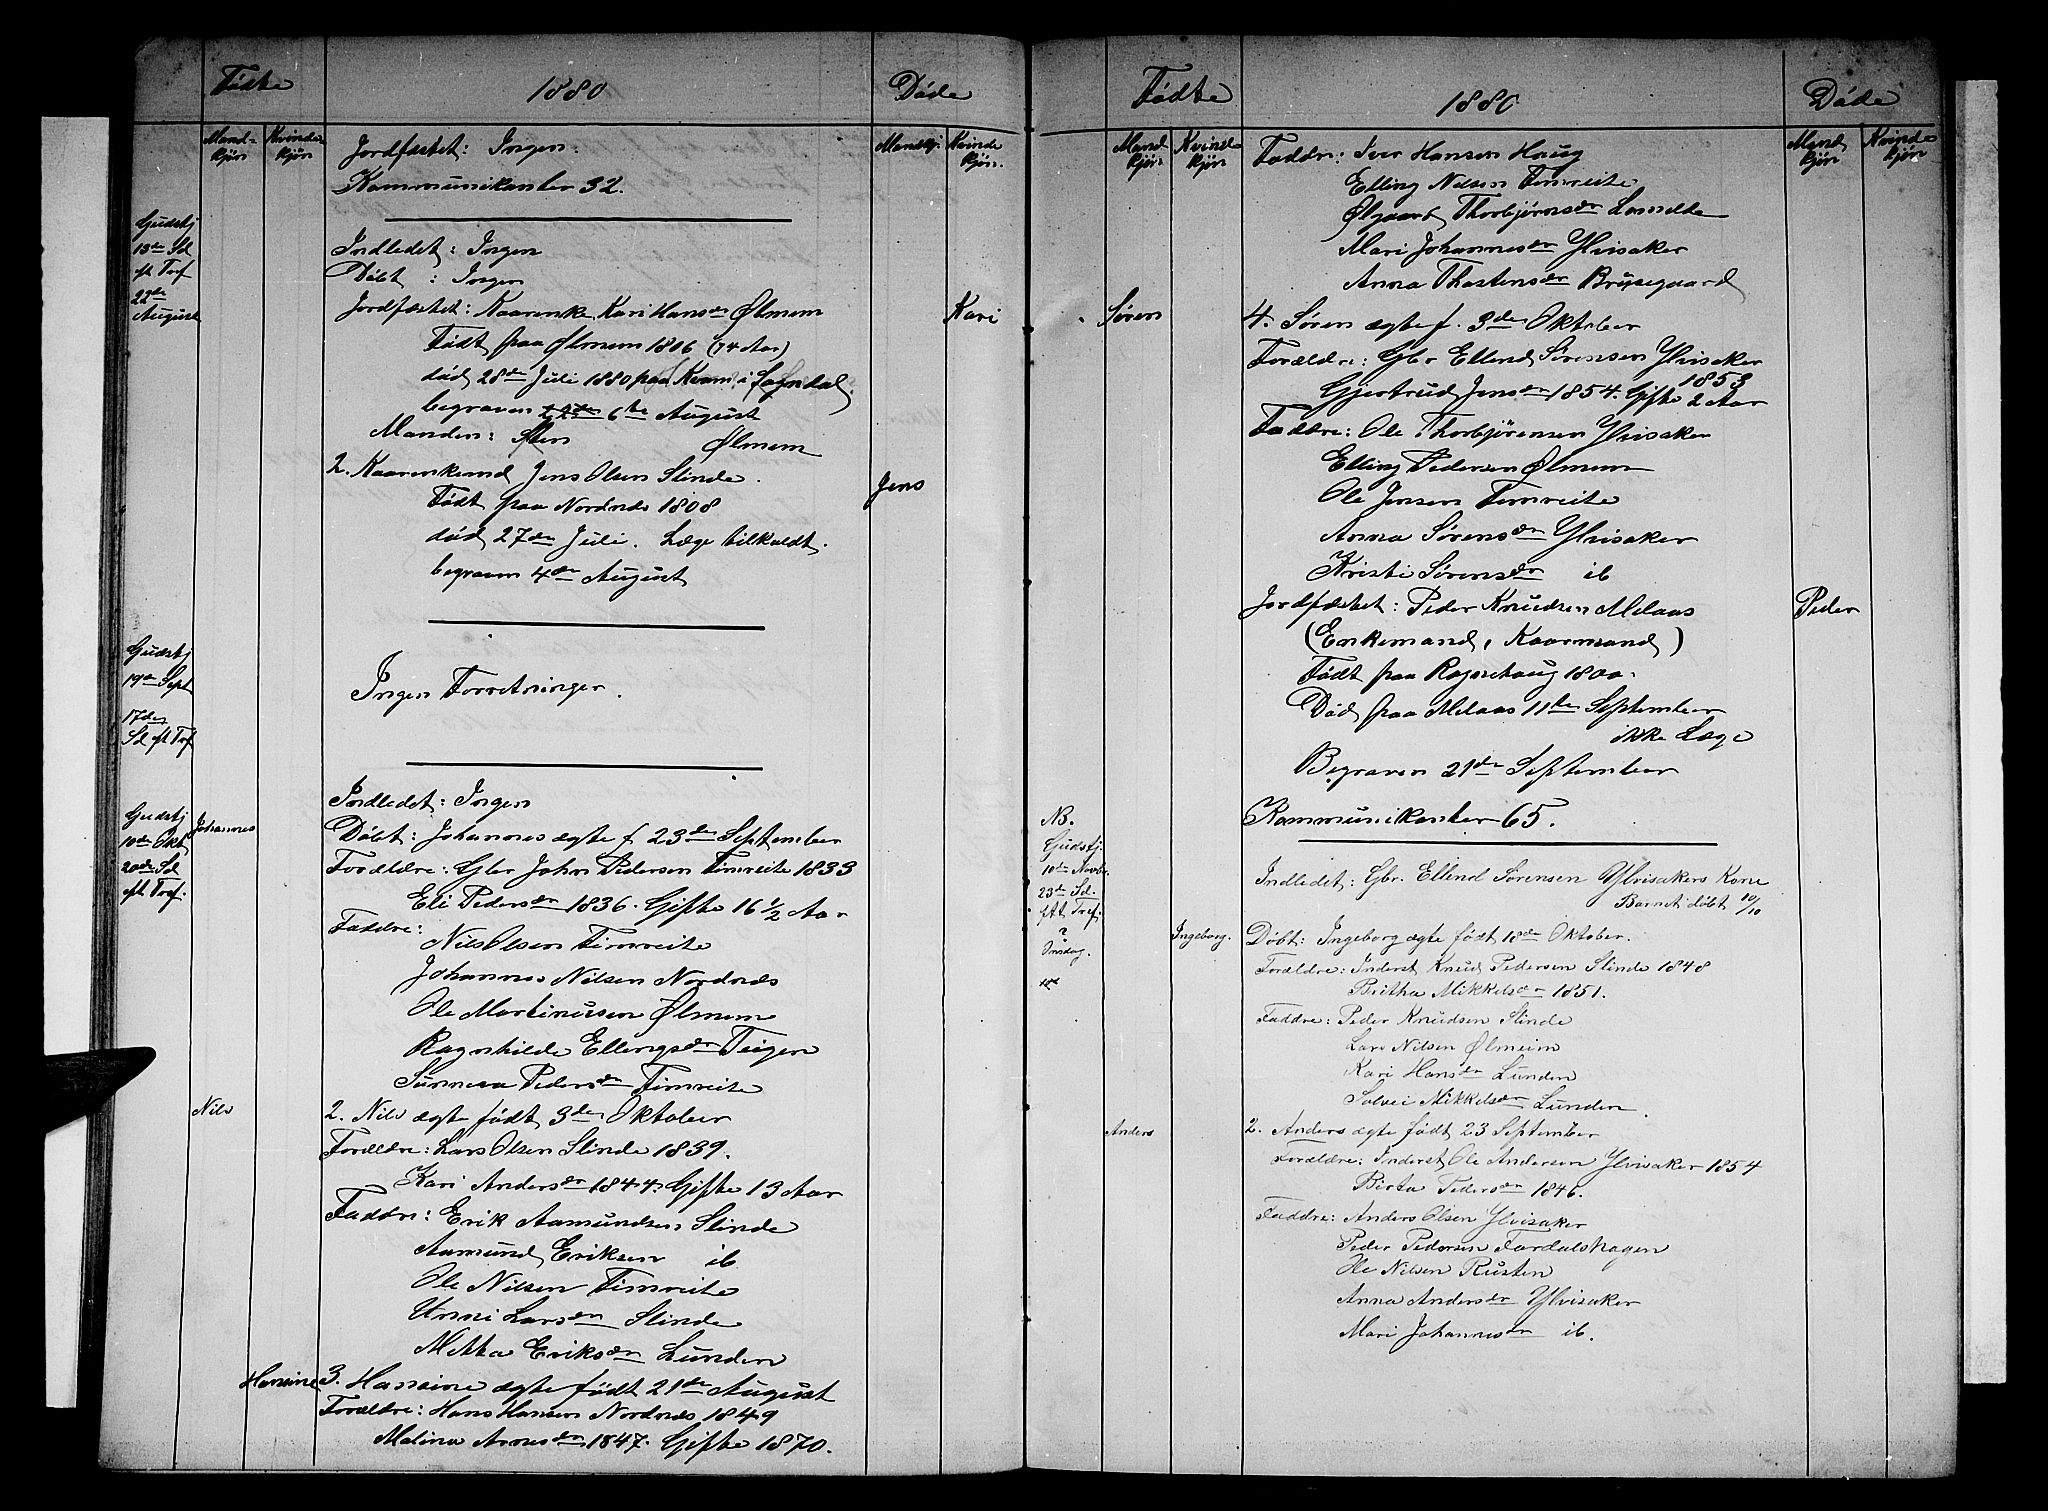 Fødte
1880
Døde
Mand-
kjøn
Kvinde-
kjøn
Mandkj.
Kvinde
kjøn.
Jordfæstet: Ingen.
Kommunikanter 32.
Gudstj
13de Sd
eft Tref
22de
August
Indledet: Ingen
Døbt : Ingen
Jordfæstet: Kaarenke Kari Hansdr Ølmem
Kari
Født paa Ølmem 1806 (74 Aar)
død 28de Juli 1880 paa Kvam i Sogndal,
begraven 6te August
Manden: Ølmem
2. Kaarenkemd Jens Olsen Slinde.
Jens
Født paa Nordnæs 1808
død 27de Juli. Læge tilkaldt.
begraven 4de August
Gudstj
19de Sept
17de
Sd eft Tref
Ingen Forretninger.
Gudstj
10de Okt
20de Sd
eft Tref.
Johannes
Indledet: Ingen
Døbt: Johannes ægte f 23de September
Forældre: Gbr John Pedersen Timreite 1833
Eli Pedersdr 1836. Gifte 16 1/2 Aar
Faddre:
Nils Olsen Timreite
Johannes Nilsen Nordnæs
Ole Martinusen Ølmem
Ragnhilde Ellingsdr Teigen
Sunneva Pedersdr Timreite
Nils
2. Nils ægte født 3de Oktober
Forældre: Lars Olsen Slinde 1839.
Kari Andersdr 1844. Gifte 13 Aar
Faddre: Erik Aamundsen Slinde
Aamund Eriksen ib
Ole Nilsen Timreite
Unni Larsdr Slinde
Metta Eriksdr Lunden
Hansine
3. Hansine ægte født 21de August
Forældre: Hans Hansen Nordnæs 1849
Malina Arnesdr 1847. Gifte 1870.
Fødte
1880
Døde
Mand
kjøn.
Kvinde
kjøn.
Mand
kjøn
Kvinde
kjøn
Faddre: Iver Hansen Haug
Elling Nilsen Timreite
Ølgaard Thorbjørnsdr Lomelde
Mari Johannesdr Ylvisaker
Anna Thostensdr Brysegaard
Søren
4. Søren ægte f. 3de Oktober
Forældre: Gbr Ellend Sørensen Ylvisaker
1853
Gjertrud Jensdr 1854. Gifte 2 Aar
Faddre: Ole Thorbjørensen Ylvisaker
Elling Pedersen Ølmem
Ole Jensen Timreite
Anna Sørensdr Ylvisaker
Kristi Sørensdr ib
Jordfæstet: Peder Knudsen Melaas
Peder
(Enkemand, Kaarmand)
Født paa Ragnehaug 1800.
Død paa Melaas 11te September
ikke Læge
Begraven 21de September
Kommunikanter 65.
NB.
Gudstj.
10de Novbr.
23de Sd.
eft Tref.
?
Onsdag.
Indledet: Gbr. Ellend Sørensen Ylvisakers Kone
Barnet døbt 10/10
Ingeborg.
Døbt: Ingeborg ægte født 18de Oktober.
Forældre: Inderst Knud Pedersen Slinde 1848
Britha Mikkelsdr 1851.
Faddre: Peder Knudsen Slinde
Lars Nilsen Ølmeim
Kari Hansdr Lunden
Solvei Mikkelsdr Lunden.
Anders
2. Anders ægte født 23 September
Forældre: Inderst Ole Andersen Ylvisaker 1854
Birta Pedersdr 1846.
Faddre: Anders Olsen Ylvisaker
Peder Pedersen Fardalshagen
Ole Nilsen Rusten
Anna Andersdr Ylvisaker
Mari Johannesdr ib.